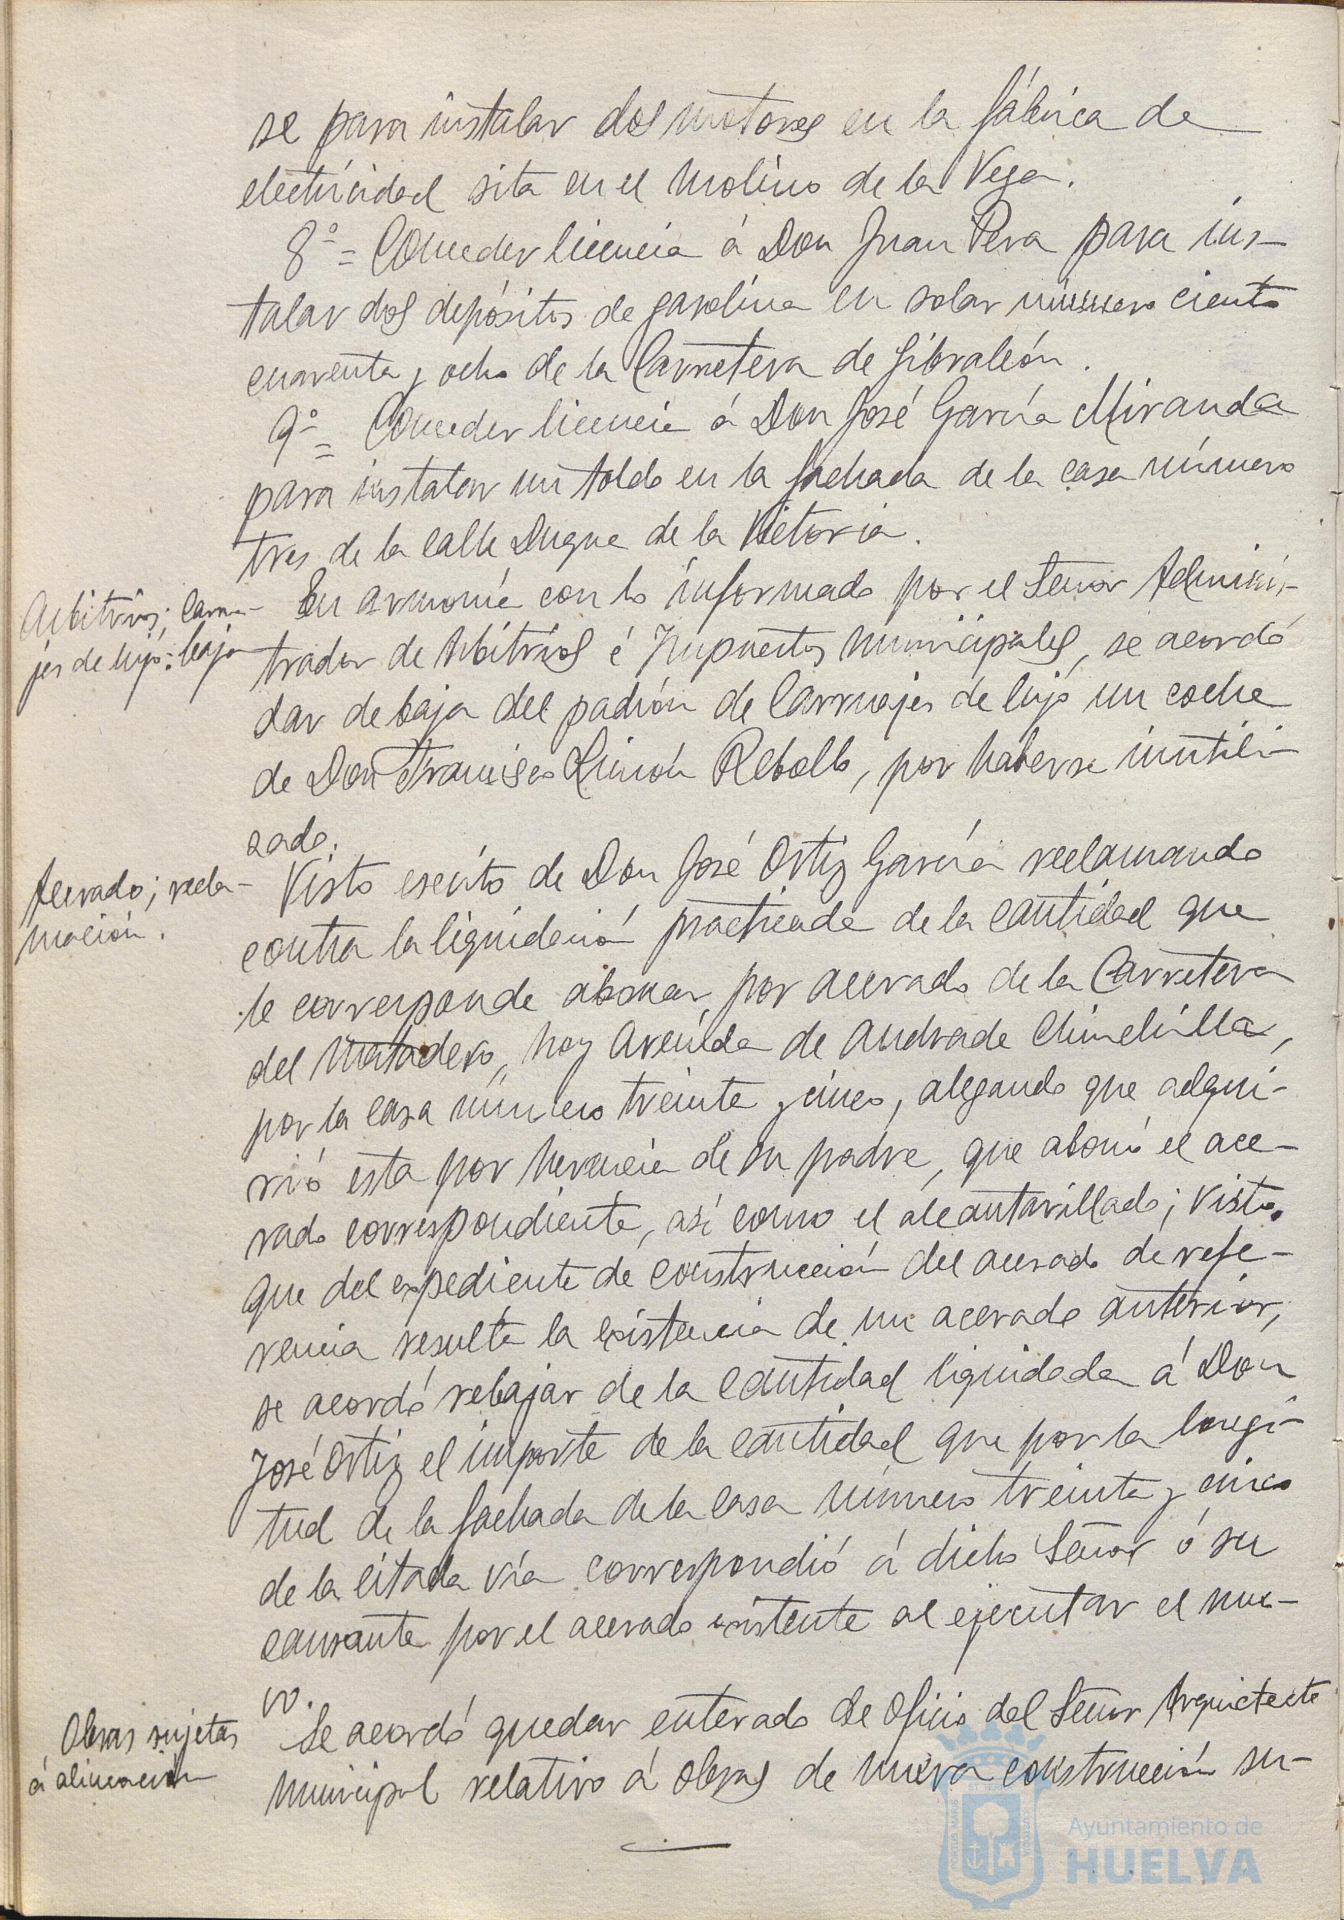 se para instalar dos motores en la fábrica de
electricidad sita en el Molino de la Vega.
8º = Conceder licencia á Don Juan Pera para ins-
talar dos depósitos de gasolina en solar número ciento
cuarenta y ocho de la Carretera de Gibraleón.
9º = Conceder licencia á Don José García Miranda
para instalar un toldo en la fachada de la casa número
tres de la calle Duque de la Victoria.
Arbitrios; Carrua-
jes de lujo: baja
En armonía con lo informado por el Señor Adminis-
trador de Arbitrios é Impuestos municipales, se acordó
dar de baja del padrón de Carruajes de lujo un coche
de Don Francisco Limón Rebollo, por haberse inutili-
zado.
Acerado; recla-
mación.
Visto escrito de Don José Ortiz García reclamando
contra la liquidación practicada de la cantidad que
le corresponde abonar por acerado de la Carretera
del Matadero, hoy Avenida de Andrade Chinchilla,
por la casa número treinta y cinco, alegando que adqui-
rió esta por herencia de su padre, que abonó el ace-
rado correspondiente, así como el alcantarillado; visto
que del expediente de construcción del acerado de refe-
rencia resulta la existencia de un acerado anterior,
se acordó rebajar de la cantidad liquidada á Don
José Ortiz el importe de la cantidad que por la longi-
tud de la fachada de la casa número treinta y cinco
de la citada vía correspondió á dicho Señor ó su
causante por el acerado existente al ejecutar el nue-
vo.
Obras sujetas
á alineación
Se acordó quedar enterado de oficio del Señor Arquitecto
municipal relativo á obras de nueva construcción su-
Ayuntamiento de
HUELVA